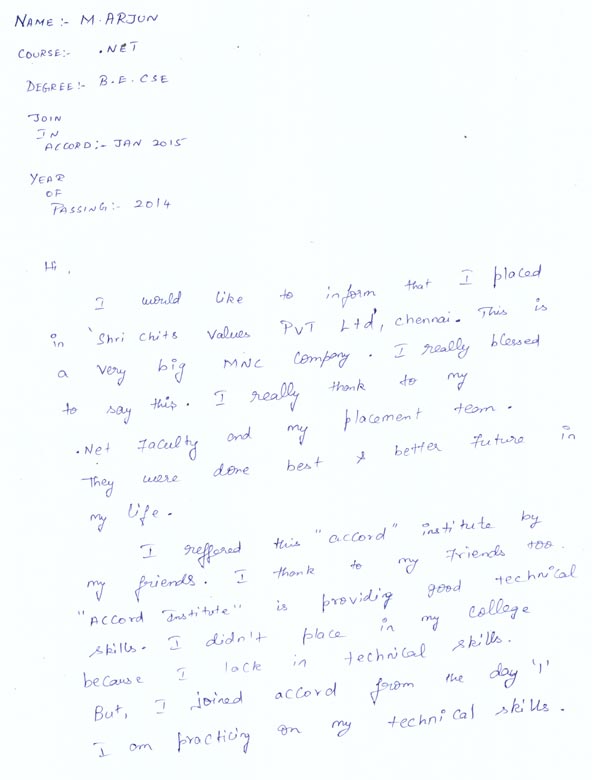 NAME :- M. ARJUN
COURSE:- .NET
DEGREE:- B.E. CSE
JOIN
IN
ACCORD:- JAN 2015
YEAR
OF
PASSING:- 2014
Hi,
I would like to inform that I placed
in 'Shri chits Values PVT Ltd', chennai. This is
a very big MNC Company. I really blessed
to say this. I really thank to my
.Net Faculty and my placement team.
They were done best & better Future in
my life.
I reffered this "accord" institute by
my friends. I thank to my Friends too.
"Accord Institute" is providing good technical
skills. I didn't place in my college
because I lack in technical skills.
But, I joined accord from the day '1'
I am practicing on my technical skills.